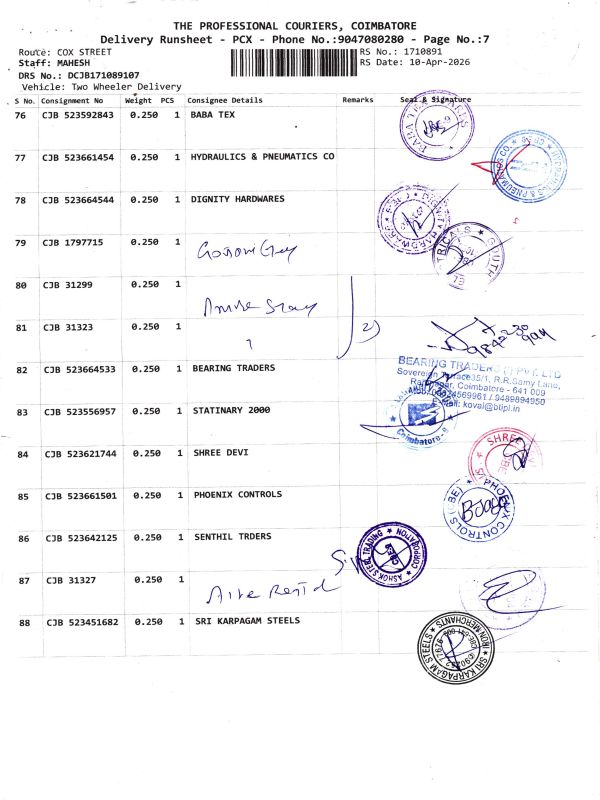 THE PROFESSIONAL COURIERS, COIMBATORE
Delivery Runsheet - PCX - Phone No.:9047080280 - Page No.:7
Route: COX STREET RS No.: 1710891
Staff: MAHESH RS Date: 10-Apr-2026
DRS No.: DCJB171089107
Vehicle: Two Wheeler Delivery
S No. Consignment No Weight PCS Consignee Details Remarks Seal & Signature
76 CJB 523592843 0.250 1 BABA TEX
77 CJB 523661454 0.250 1 HYDRAULICS & PNEUMATICS CO
78 CJB 523664544 0.250 1 DIGNITY HARDWARES
79 CJB 1797715 0.250 1
80 CJB 31299 0.250 1
81 CJB 31323 0.250 1
82 CJB 523664533 0.250 1 BEARING TRADERS
BEARING TRADERS (I) PVT. LTD
R.R.Samy Lane,
Coimbatore - 641 009
/ 9489894950
83 CJB 523556957 0.250 1 STATINARY 2000
Coimbatore
84 CJB 523621744 0.250 1 SHREE DEVI
SHREE
85 CJB 523661501 0.250 1 PHOENIX CONTROLS
PHOENIX CONTROLS (CBE)
86 CJB 523642125 0.250 1 SENTHIL TRDERS
ASHOK STEEL TRADING CORPORATION
87 CJB 31327 0.250 1
88 CJB 523451682 0.250 1 SRI KARPAGAM STEELS
SRI KARPAGAM STEELS
IRON MERCHANTS